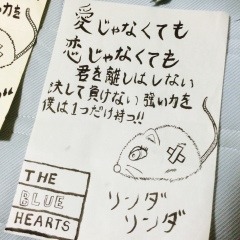 愛じゃなくても
恋じゃなくても
君を離しはしない
決して負けない強い力を
僕は1つだけ持つ!!
THE
BLUE
HEARTS
リンダ
リンダ